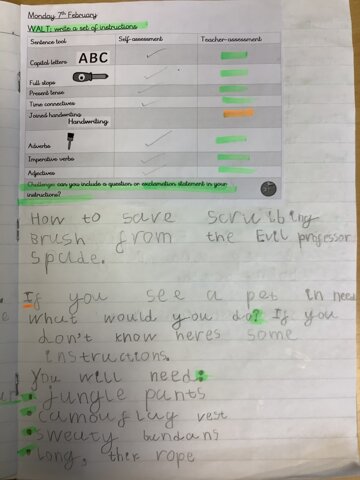 Monday 7th February
WALT: write a set of instructions
Sentence tool Self-assessment Teacher-assessment
Capital letters ABC
Full stops
Present tense
Time connectives
Joined handwriting
Handwriting
Adverbs
Imperative verbs
Adjectives
Challenge: can you include a question or exclamation statement in your
instructions?
How to save Scrubbing
Brush from the Evil professor
Spade.
If you see a pet in need
what would you do? If you
don't know heres some
instructions.
You will need:
jungle pants
camouflag vest
sweaty bandans
long, thick rope